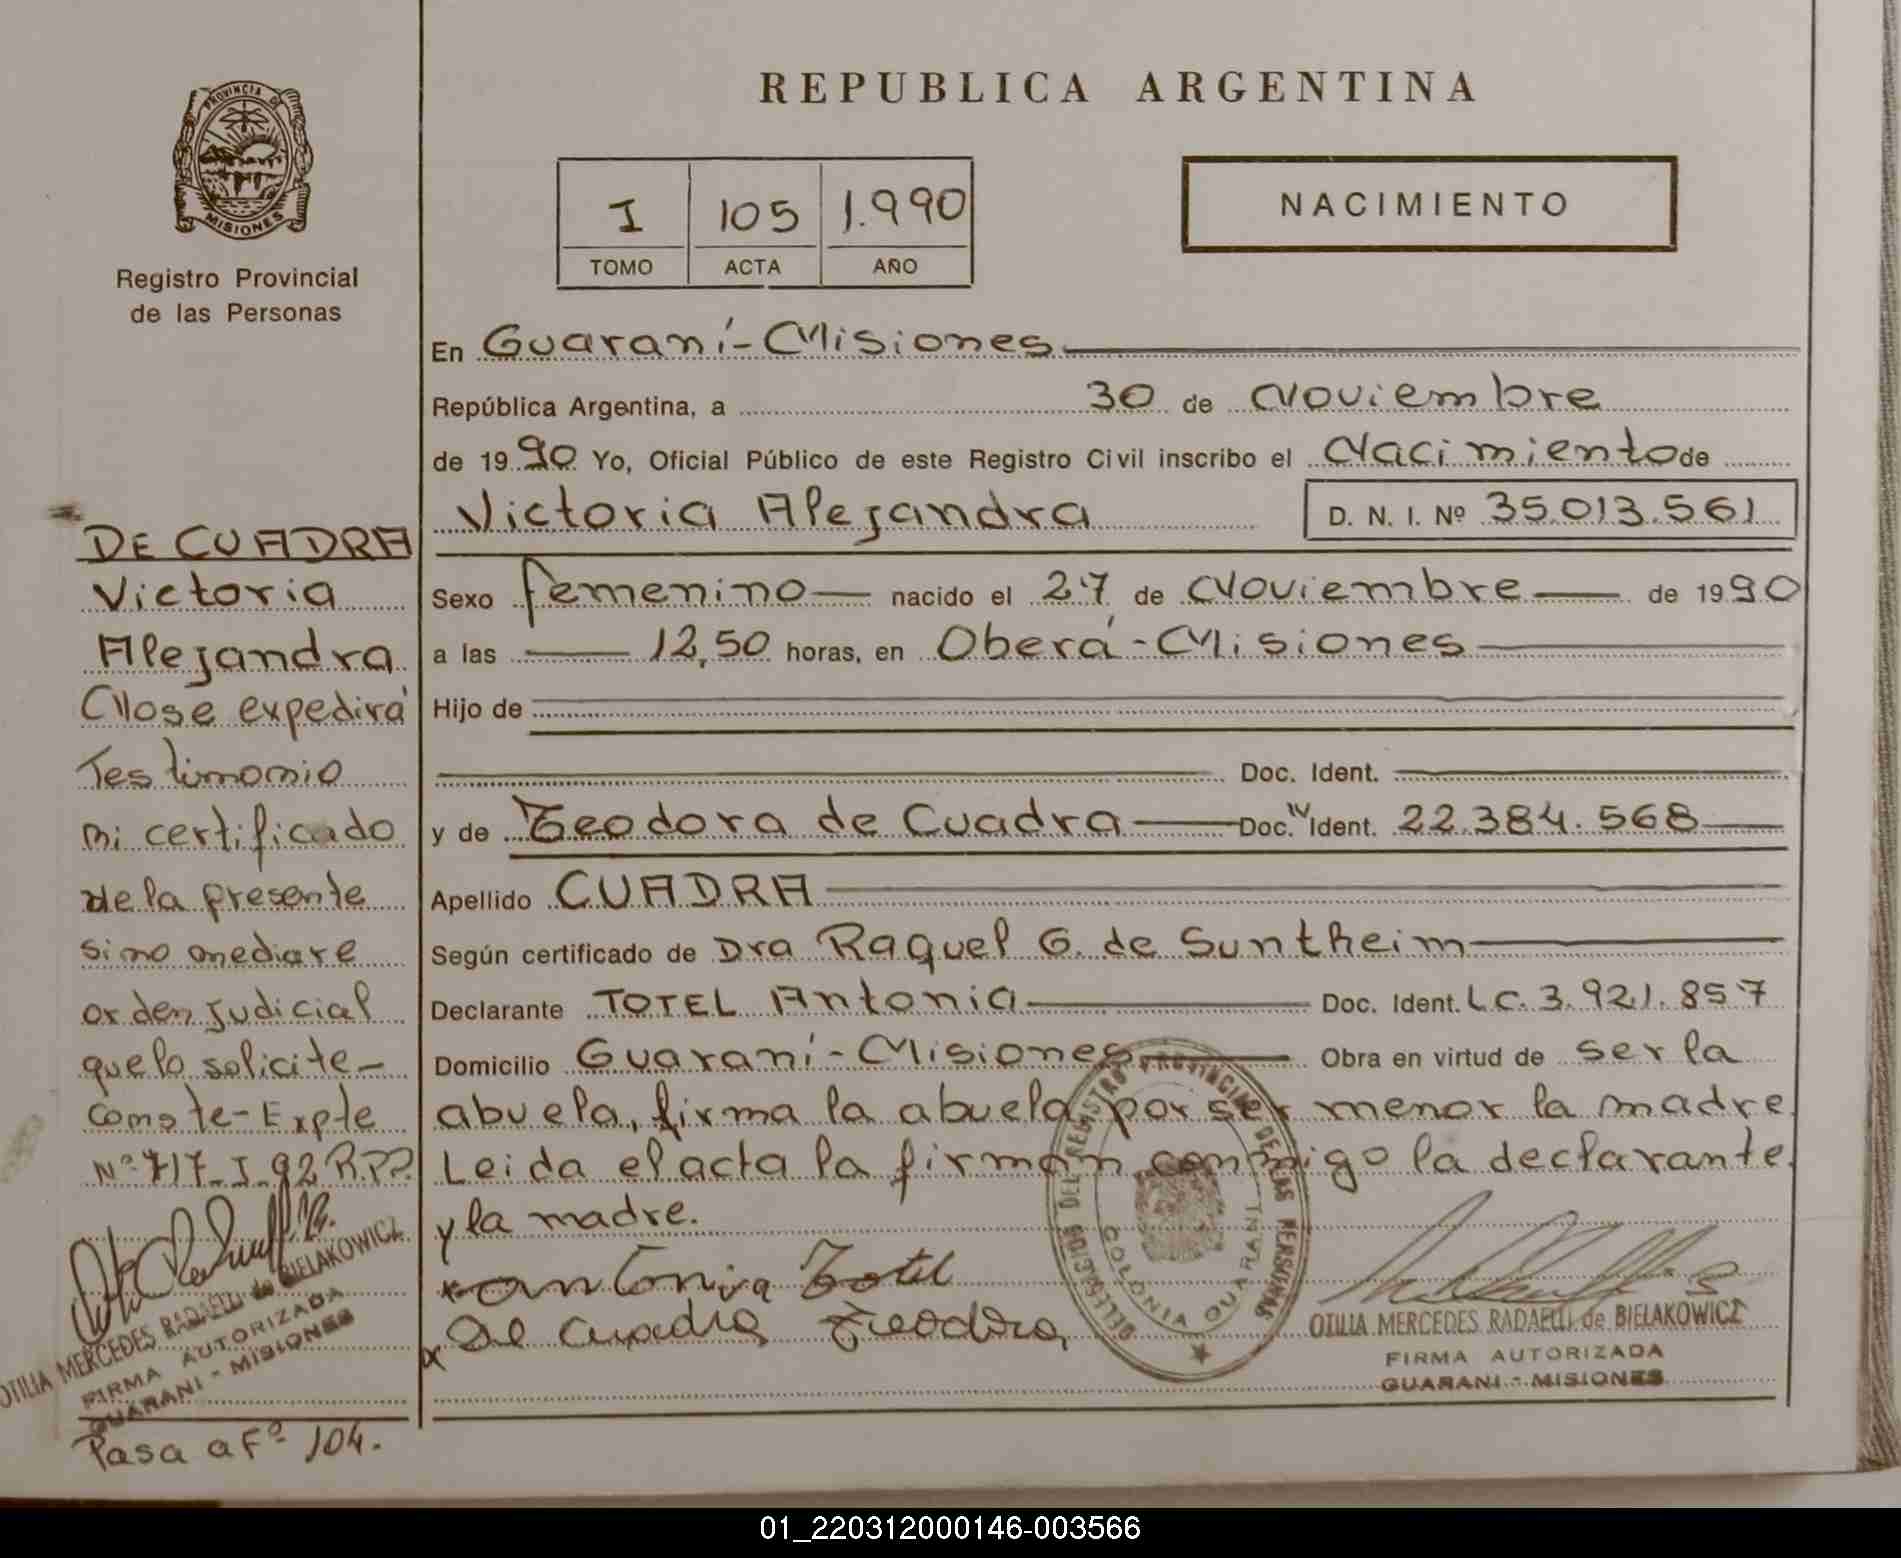 REPUBLICA ARGENTINA
PROVINCIA DE
MISIONES
Registro Provincial
de las Personas
I 105 1.990
TOMO ACTA AÑO
NACIMIENTO
En Guaraní-Misiones
República Argentina, a 30 de Noviembre
de 1990 Yo, Oficial Público de este Registro Civil inscribo el Nacimiento de
Victoria Alejandra D. N. I. Nº 35.013.561
Sexo femenino nacido el 27 de Noviembre de 1990
a las 12,50 horas, en Oberá-Misiones
Hijo de
Doc. Ident.
y de Teodora de Cuadra Doc. Ident. 22.384.568
Apellido CUADRA
Según certificado de Dra Raquel G. de Suntheim
Declarante TOTEL Antonia Doc. Ident. L.C. 3.921.857
Domicilio Guaraní-Misiones Obra en virtud de ser la
abuela, firma la abuela por ser menor la madre.
Leida el acta la firman conmigo la declarante
y la madre.
x Antonia Totel
x De Cuadra Teodora
DELEGACION DEL REGISTRO PROVINCIAL DE LAS PERSONAS
COLONIA GUARANI
OTILIA MERCEDES RADAELLI de BIELAKOWICZ
FIRMA AUTORIZADA
GUARANI - MISIONES
DE CUADRA
Victoria
Alejandra
No se expedirá
Testimonio
ni certificado
de la presente
si no mediare
orden judicial
que lo solicite-
Conste-Expte
Nº 717-I-92 R.P.P.
OTILIA MERCEDES RADAELLI de BIELAKOWICZ
FIRMA AUTORIZADA
GUARANI - MISIONES
Pasa a Fº 104.
01_220312000146-003566